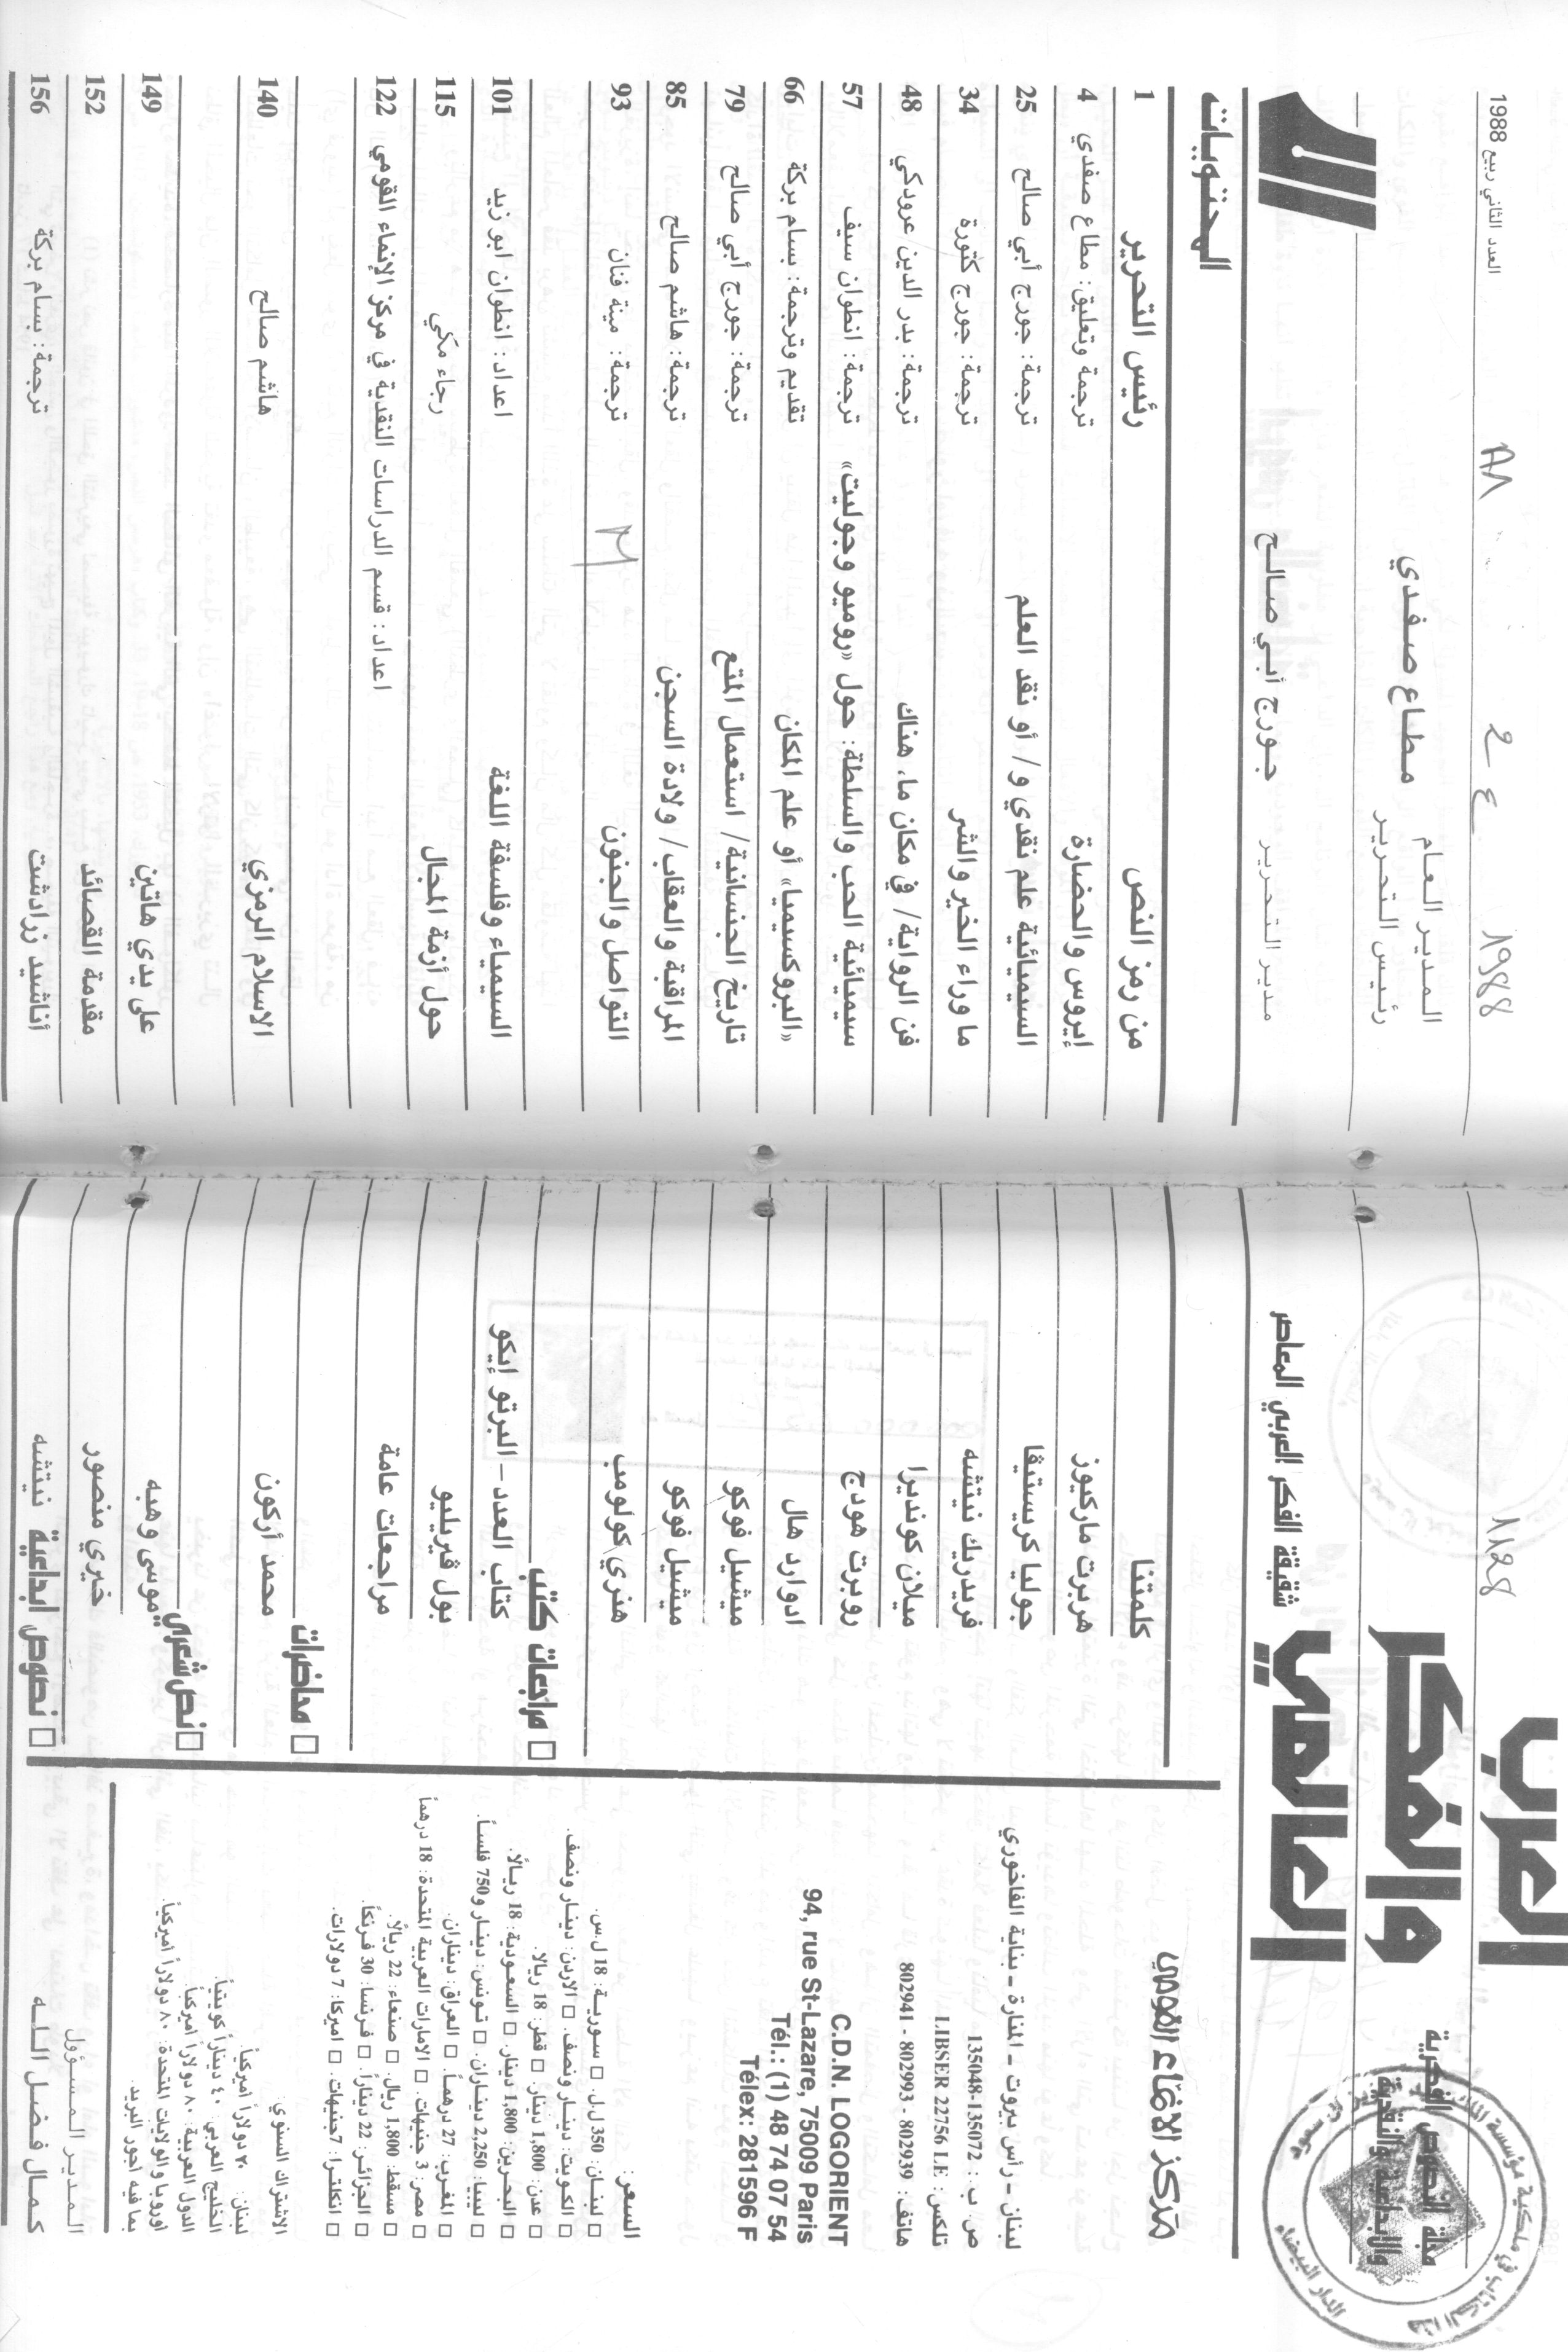 العرب
والفكر
العالمي
مجلة النصوص الفكرية
والإبداعية والنقدية
شقيقة الفكر العربي المعاصر
1128
1988
العدد الثاني ربيع 1988
المدير العام
رئيس التحرير
مطاع صفدي
مدير التحرير
جورج أبي صالح
المحتويات
كلمتنا من رمز النص رئيس التحرير 1
هربرت ماركيوز إيروس والحضارة ترجمة وتعليق: مطاع صفدي 4
جوليا كريستيڤا السيميائية علم نقدي و/ أو نقد العلم ترجمة: جورج أبي صالح 25
فريدريك نيتشه ما وراء الخير والشر ترجمة: جورج كتورة 34
ميلان كونديرا فن الرواية/ في مكان ما، هناك ترجمة: بدر الدين عرودكي 48
روبرت هودج سيميائية الحب والسلطة: حول «روميو وجوليت» ترجمة: انطوان سيف 57
ادوارد هال «البروكسيميا» أو علم المكان تقديم وترجمة: بسام بركة 66
ميشيل فوكو تاريخ الجنسانية/ استعمال المتع ترجمة: جورج أبي صالح 79
ميشيل فوكو المراقبة والعقاب/ ولادة السجن ترجمة: هاشم صالح 85
هنري كولومب التواصل والجنون ترجمة: مينة فنان 93
□ مراجعات كتب
كتاب العدد - البرتو إيكو السيمياء وفلسفة اللغة اعداد: انطوان ابو زيد 101
بول ڤيريليو حول أزمة المجال رجاء مكي 115
مراجعات عامة اعداد: قسم الدراسات النقدية في مركز الإنماء القومي 122
□ محاضرات
محمد أركون الاسلام الرمزي هاشم صالح 140
□ نص شعري
موسى وهبه على يدي هاتين 149
خيري منصور مقدمة القصائد 152
□ نصوص ابداعية نيتشه أناشيد زرادشت ترجمة: بسام بركة 156
مركز الانماء القومي
لبنان - رأس بيروت - المنارة - بناية الفاخوري
ص. ب.: 135072-135048
تلكس: LIBSER 22756 LE
هاتف: 802939 - 802993 - 802941
C.D.N. LOGORIENT
94, rue St-Lazare, 75009 Paris
Tél.: (1) 48 74 07 54
Télex: 281596 F
السعر:
□ لبنان: 350 ل.ل. □ سورية: 18 ل.س.
□ الكويت: دينار ونصف. □ الاردن: دينار ونصف.
□ عدن: 1,800 دينار. □ قطر: 18 ريالا.
□ البحرين: 1,800 دينار. □ السعودية: 18 ريالاً.
□ ليبيا: 2,250 ديناران. □ تونس: دينار و750 فلساً.
□ المغرب: 27 درهماً. □ العراق: ديناران.
□ مصر: 3 جنيهات. □ الامارات العربية المتحدة: 18 درهماً
□ مسقط: 1,800 ريال. □ صنعاء: 22 ريالاً.
□ الجزائر: 22 ديناراً. □ فرنسا: 30 فرنكاً.
□ انكلترا: 7جنيهات. □ اميركا: 7 دولارات.
الاشتراك السنوي:
لبنان: ٢٠ دولاراً أميركياً
الخليج العربي: ٤٠ ديناراً كويتياً.
الدول العربية: ٨٠ دولاراً اميركياً.
اوروبا والولايات المتحدة: ٨٠ دولاراً اميركياً.
بما فيه أجور البريد.
المدير المسؤول
كمال فضل الله